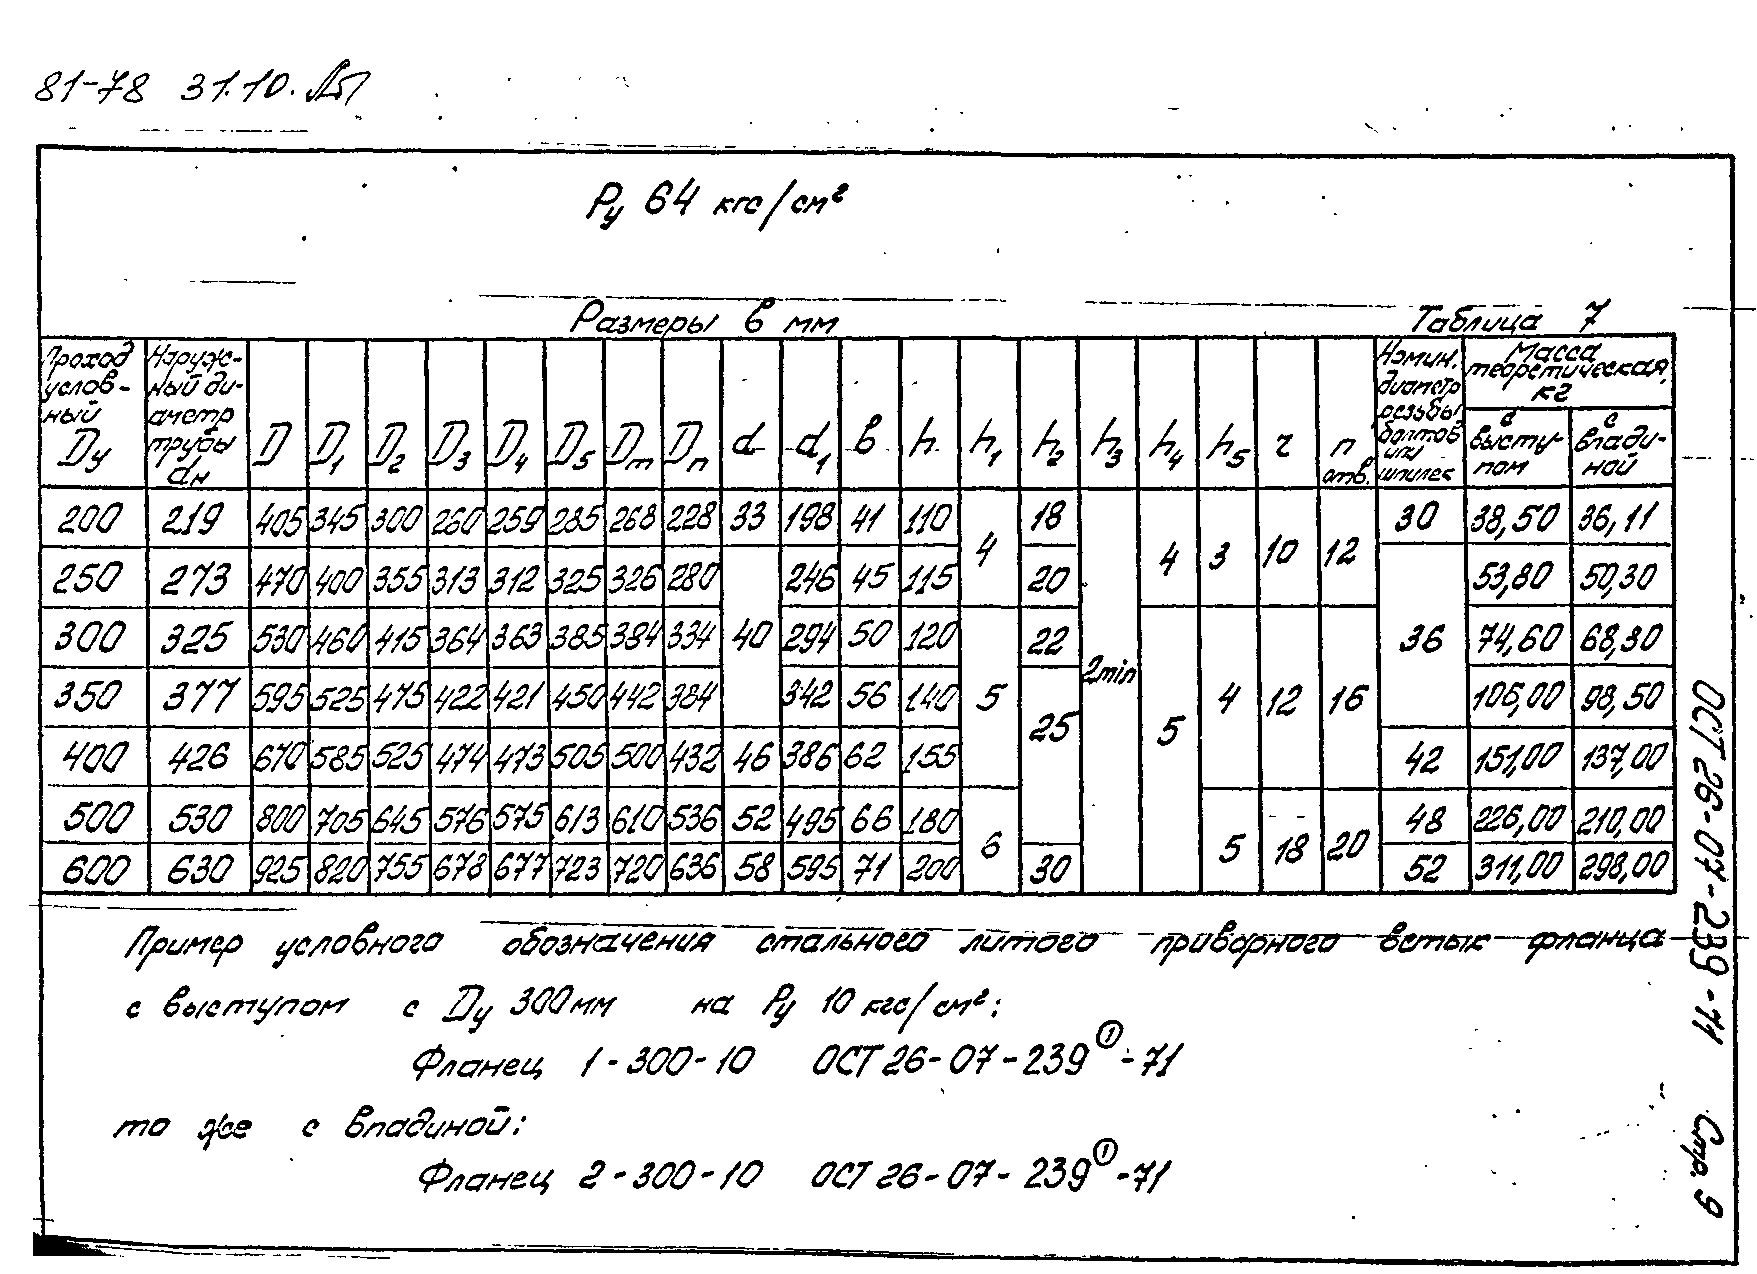 81-78 31.10.
Pу 64 кгс/см²
Размеры в мм Таблица 7
Проход условный Dу | Наружный диаметр трубы dн | D | D1 | D2 | D3 | D4 | D5 | Dm | Dп | d | d1 | в | h | h1 | h2 | h3 | h4 | h5 | r | n отв. | Номин. диаметр резьбы болтов или шпилек | Масса теоретическая, кг с выступом | с впадиной
200 219 405 345 300 260 259 285 268 228 33 198 41 110 4 18 2min 4 3 10 12 30 38,50 36,11
250 273 470 400 355 313 312 325 326 280 40 246 45 115 20 36 53,80 50,30
300 325 530 460 415 364 363 385 384 334 294 50 120 5 22 5 4 12 16 74,60 68,30
350 377 595 525 475 422 421 450 442 384 342 56 140 25 106,00 98,50
400 426 670 585 525 474 473 505 500 432 46 386 62 155 42 151,00 137,00
500 530 800 705 645 576 575 613 610 536 52 495 66 180 6 5 18 20 48 226,00 210,00
600 630 925 820 755 678 677 723 720 636 58 595 71 200 30 52 311,00 298,00
Пример условного обозначения стального литого приворного встык фланца
с выступом с Dу 300мм на Pу 10 кгс/см²:
Фланец 1-300-10 ОСТ 26-07-239①-71
то же с впадиной:
Фланец 2-300-10 ОСТ 26-07-239①-71
ОСТ 26-07-239-71 Стр. 9